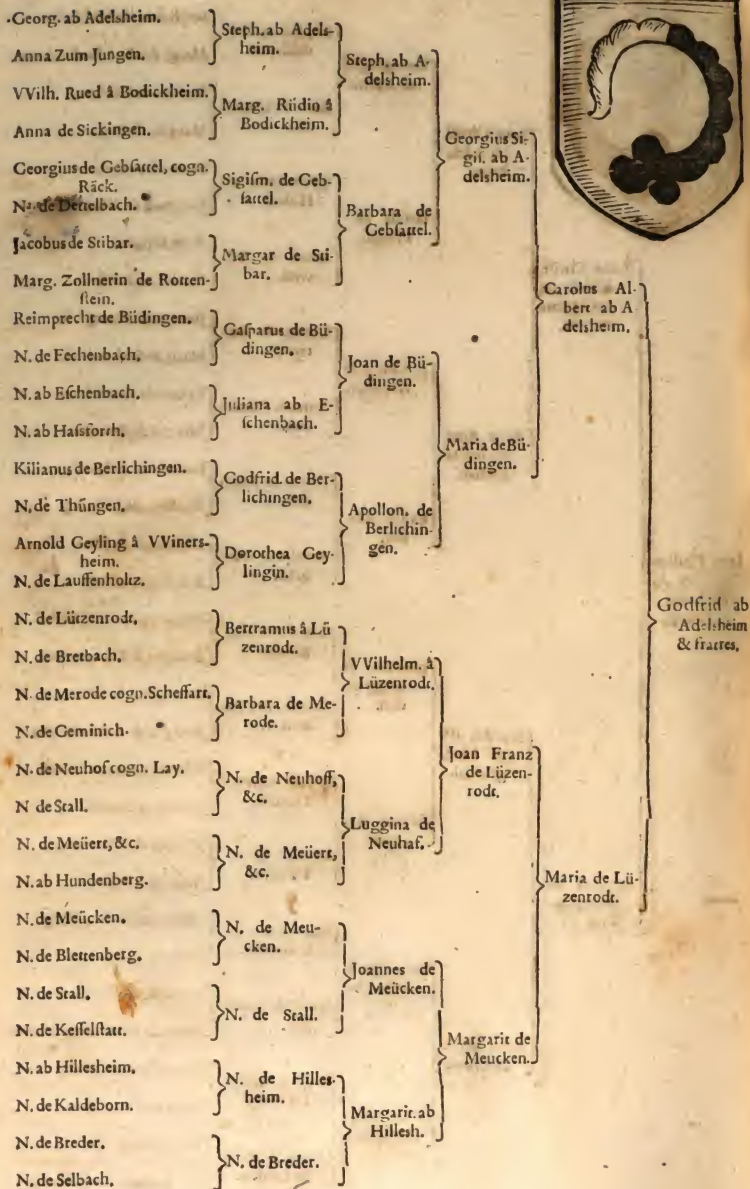 Georg. ab Adelsheim.
Anna Zum Jungen.
VVilh. Rued â Bodickheim.
Anna de Sickingen.
Georgius de Gebsattel, cogn.
Räck.
Na. de Dettelbach.
Jacobus de Stibar.
Marg. Zollnerin de Rotten-
stein.
Reimprecht de Büdingen.
N. de Fechenbach.
N. ab Eschenbach.
N. ab Hassforth.
Kilianus de Berlichingen.
N. de Thüngen.
Arnold Geyling â VViners-
heim.
N. de Lauffenholtz.
N. de Lützenrodt.
N. de Bretbach.
N. de Merode cogn. Scheffart.
N. de Geminich.
N. de Neuhof cogn. Lay.
N de Stall.
N. de Meüert, &c.
N. ab Hundenberg.
N. de Meücken.
N. de Blettenberg.
N. de Stall.
N. de Kesselstatt.
N. ab Hillesheim.
N. de Kaldeborn.
N. de Breder.
N. de Selbach.
Steph. ab Adels-
heim.
Marg. Rüdin â
Bodickheim.
Sigism. de Geb-
sattel.
Margar de Sti-
bar.
Gasparus de Bü-
dingen.
Juliana ab E-
schenbach.
Godfrid. de Ber-
lichingen.
Dorothea Gey-
lingin.
Bertramus â Lü
zenrodt.
Barbara de Me-
rode.
N. de Neuhoff,
&c.
N. de Meüert,
&c.
N. de Meu-
cken.
N. de Stall.
N. de Hilles-
heim.
N. de Breder.
Steph. ab A-
delsheim.
Barbara de
Gebsattel.
Joan de Bü-
dingen.
Apollon. de
Berlichin-
gen.
VVilhelm. â
Lüzenrodt.
Luggina de
Neuhaf.
Joannes de
Meücken.
Margarit. ab
Hillesh.
Georgius Si-
gis. ab A-
delsheim.
Maria de Bü-
dingen.
Joan Franz
de Lüzen-
rodt.
Margarit de
Meucken.
Carolus Al-
bert ab A
delsheim.
Maria de Lü-
zenrodt.
Godfrid ab
Adelsheim
& fratres.